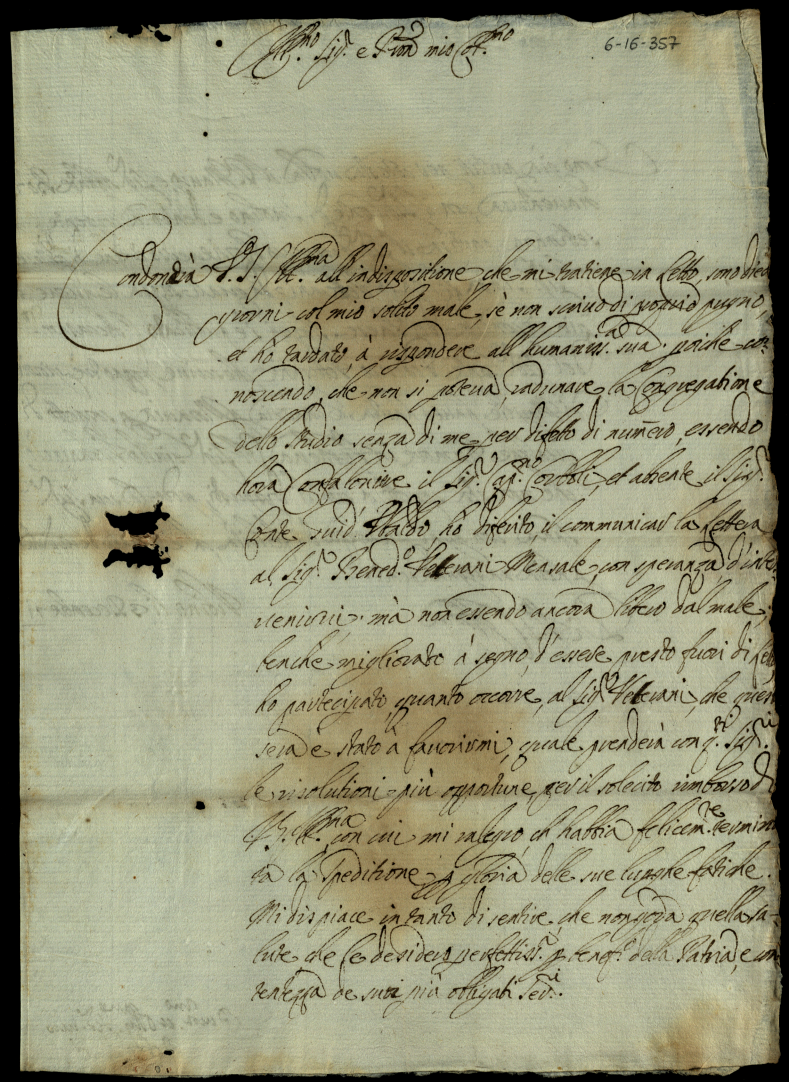 6-16-357
Ill.mo Sig.r e P.ron mio Col.mo
Condonerà V.S. Ill.ma all'indispositione che mi ratiene in letto, sono dieci
giorni col mio solito male, sè non scrivo di proprio pugno,
et hò tardato, à rispondere all'humaniss.a sua poiche co-
noscendo, che non si poteva radunare la Congregatione
dello Studio senza di me per difetto di numero, essendo
hora Confaloniere il Sig.r Cap.no et absente il Sig.r
Conte Guid'Vbaldo, hò diferito, il communicar la lettera
al Sig.r Bened.o Veterani Mensale, con speranza d'inter
venirvi. mà non essendo ancora libero dal male,
benche migliorato à segno, d'essere presto fuori di letto
hò partecipato, quanto occorre, al Sig.r Veterani, che questa
sera è stato à favorirmi, quale prenderà con q.ti Sig.ri
le risolutioni più opportune, per il solecito rimborso di
V.S. Ill.ma con cui mi ralegro, ch'habbia felicem.te termina
ta la speditione, à gloria delle sue lunghe fatiche.
Mi dispiace in tanto di sentire, che non goda quella sa-
lute che le desidero perfettiss.a p benef.o della Patria, e con
tentezza de suoi più obligati Ser.ri